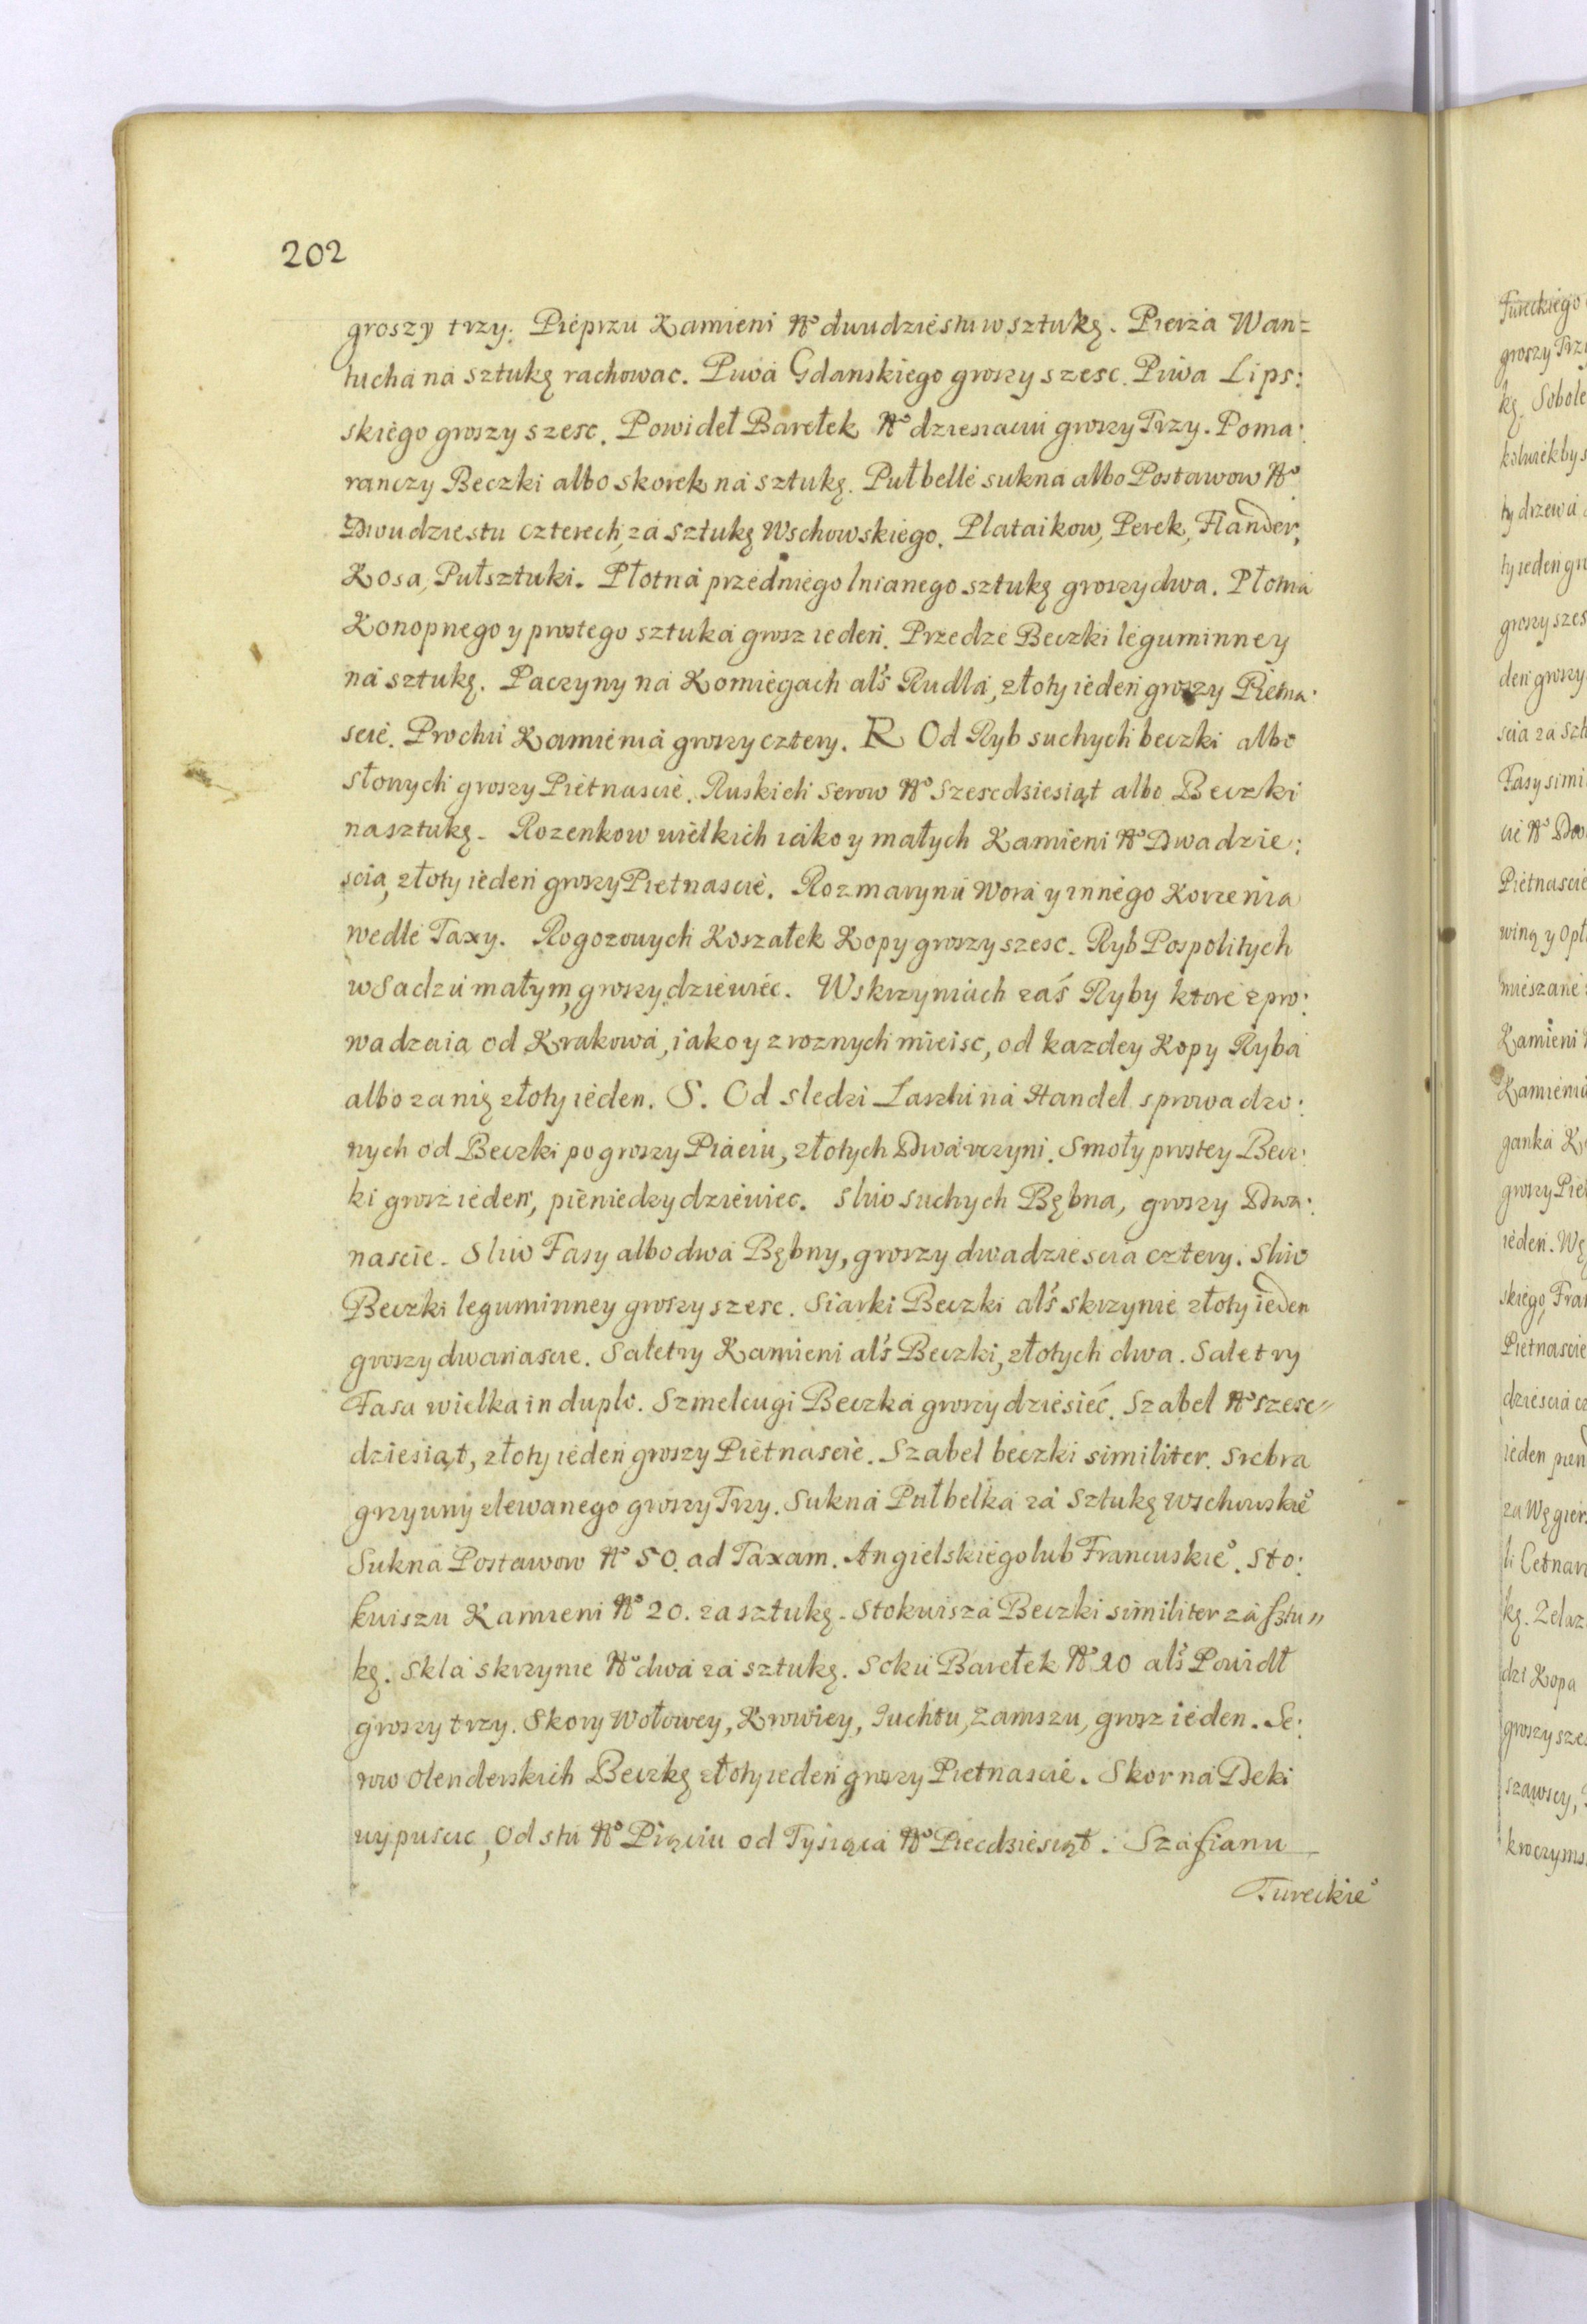 202
groszy trzy. Pieprzu Kamieni No dwudziestu w sztukę. Pierza Wan=
tucha na sztukę rachowac. Piwa Gdanskiego groszy szesc. Piwa Lips:
skiego groszy szesc. Powideł Barełek No dziesiąciu groszy Trzy. Poma:
ranczy Beczki albo skorek na sztukę. Pułbelle sukna albo Postawow No
Dwudziestu czterech, za sztukę Wschowskiego. Plataikow, Perek, Flander,
Kosa, Pułsztuki. Płotna przedniego lnianego sztukę groszy dwa. Płotna
Konopnego y prostego sztuka grosz ieden. Przedze Beczki leguminney
na sztukę. Paczyny na Komiegach als Rudla, złoty ieden groszy Pietna:
scie. Prochu Kamienia groszy cztery. R Od Ryb suchych beczki albo
słonych groszy Pietnascie. Ruskich serow No szescdziesiąt albo Beczki
na sztukę. Rozenkow wielkich iako y małych Kamieni No Dwadzie:
scia, złoty ieden groszy Pietnascie. Rozmarynu Wora y innego Korzenia
wedle Taxy. Rogozowych Koszałek Kopy groszy szesc. Ryb Pospolitych
w Sadzu małym, groszy dziewiec. W skrzyniach zaś Ryby ktore zpro:
wadzaia od Krakowa, iako y z roznych mieisc, od kazdey Kopy Ryba
albo za nię złoty ieden. S. Od sledzi Laszki na Handel sprowadzo:
nych od Beczki po groszy Piąciu, złotych Dwa uczyni. Smoły prostey Becz:
ki grosz ieden, pieniedzy dziewiec. Sliw suchych Bębna, groszy Dwa:
nascie. Sliw Fasy albo dwa Bębny, groszy dwadziescia cztery. Sliw
Beczki leguminney groszy szesc. Siarki Beczki als skrzynie złoty ieden
groszy dwanascie. Saletry Kamieni als Beczki, złotych dwa. Saletry
Fasa wielka in duplo. Szmelcugi Beczka groszy dziesieć. Szabel No szesc"
dziesiąt, złoty ieden groszy Pietnascie. Szabel beczki similiter. Srebra
grzywny zlewanego groszy Trzy. Sukna Pułbelka za Sztukę wschowskie°
Sukna Postawow No 50. ad Taxam. Angielskiego lub Francuskie°. Sto:
kwiszu Kamieni No 20. za sztukę. Stokwisza Beczki similiter za sztu"
kę. Skla skrzynie No dwa za sztukę. Soku Barełek No 20 als Powidł
groszy trzy. Skory Wołowey, Krowiey, Juchtu, Zamszu, grosz ieden. Se:
row olenderskich Beczkę złoty ieden groszy Pietnascie. Skor na Deki
wypuscic, Od stu No Pięciu od Tysiąca No Piecdziesiąt. Szafianu
Tureckie°